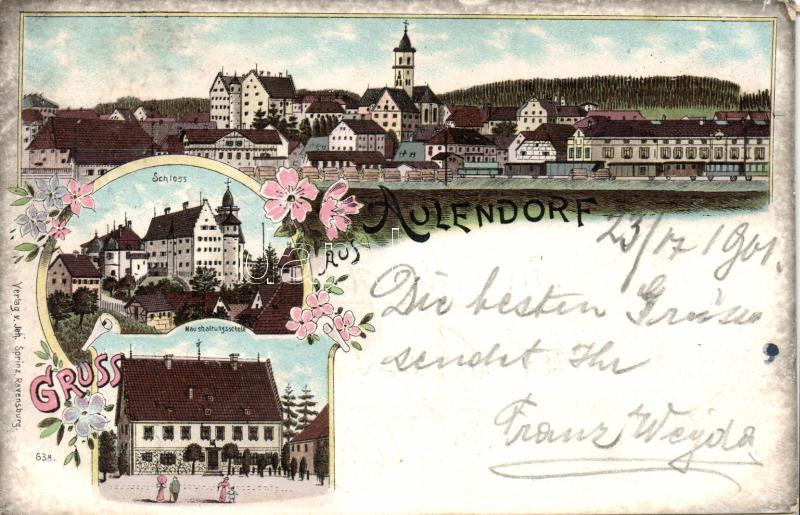 Schloss
GRUSS AUS AULENDORF
Haushaltungsschule
Verlag v. Joh. Sprinz, Ravensburg.
638.
Die besten Grüsse
sendet Ihr
Franz Weyda